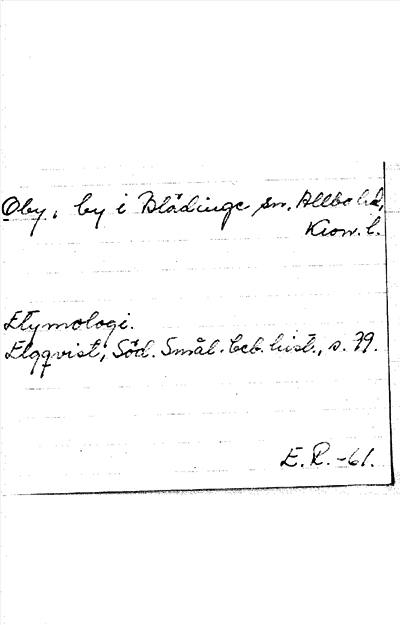 Oby, by i Blädinge sn, Allbo hd,
Kron. l.
Etymologi.
Elgqvist, Söd. Smål. beb. hist., s. 79.
E. R. -61.